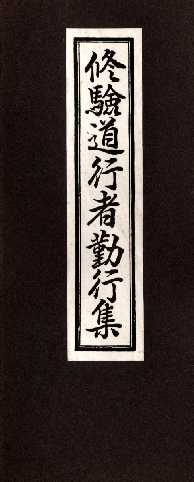 修驗道行者勤行集